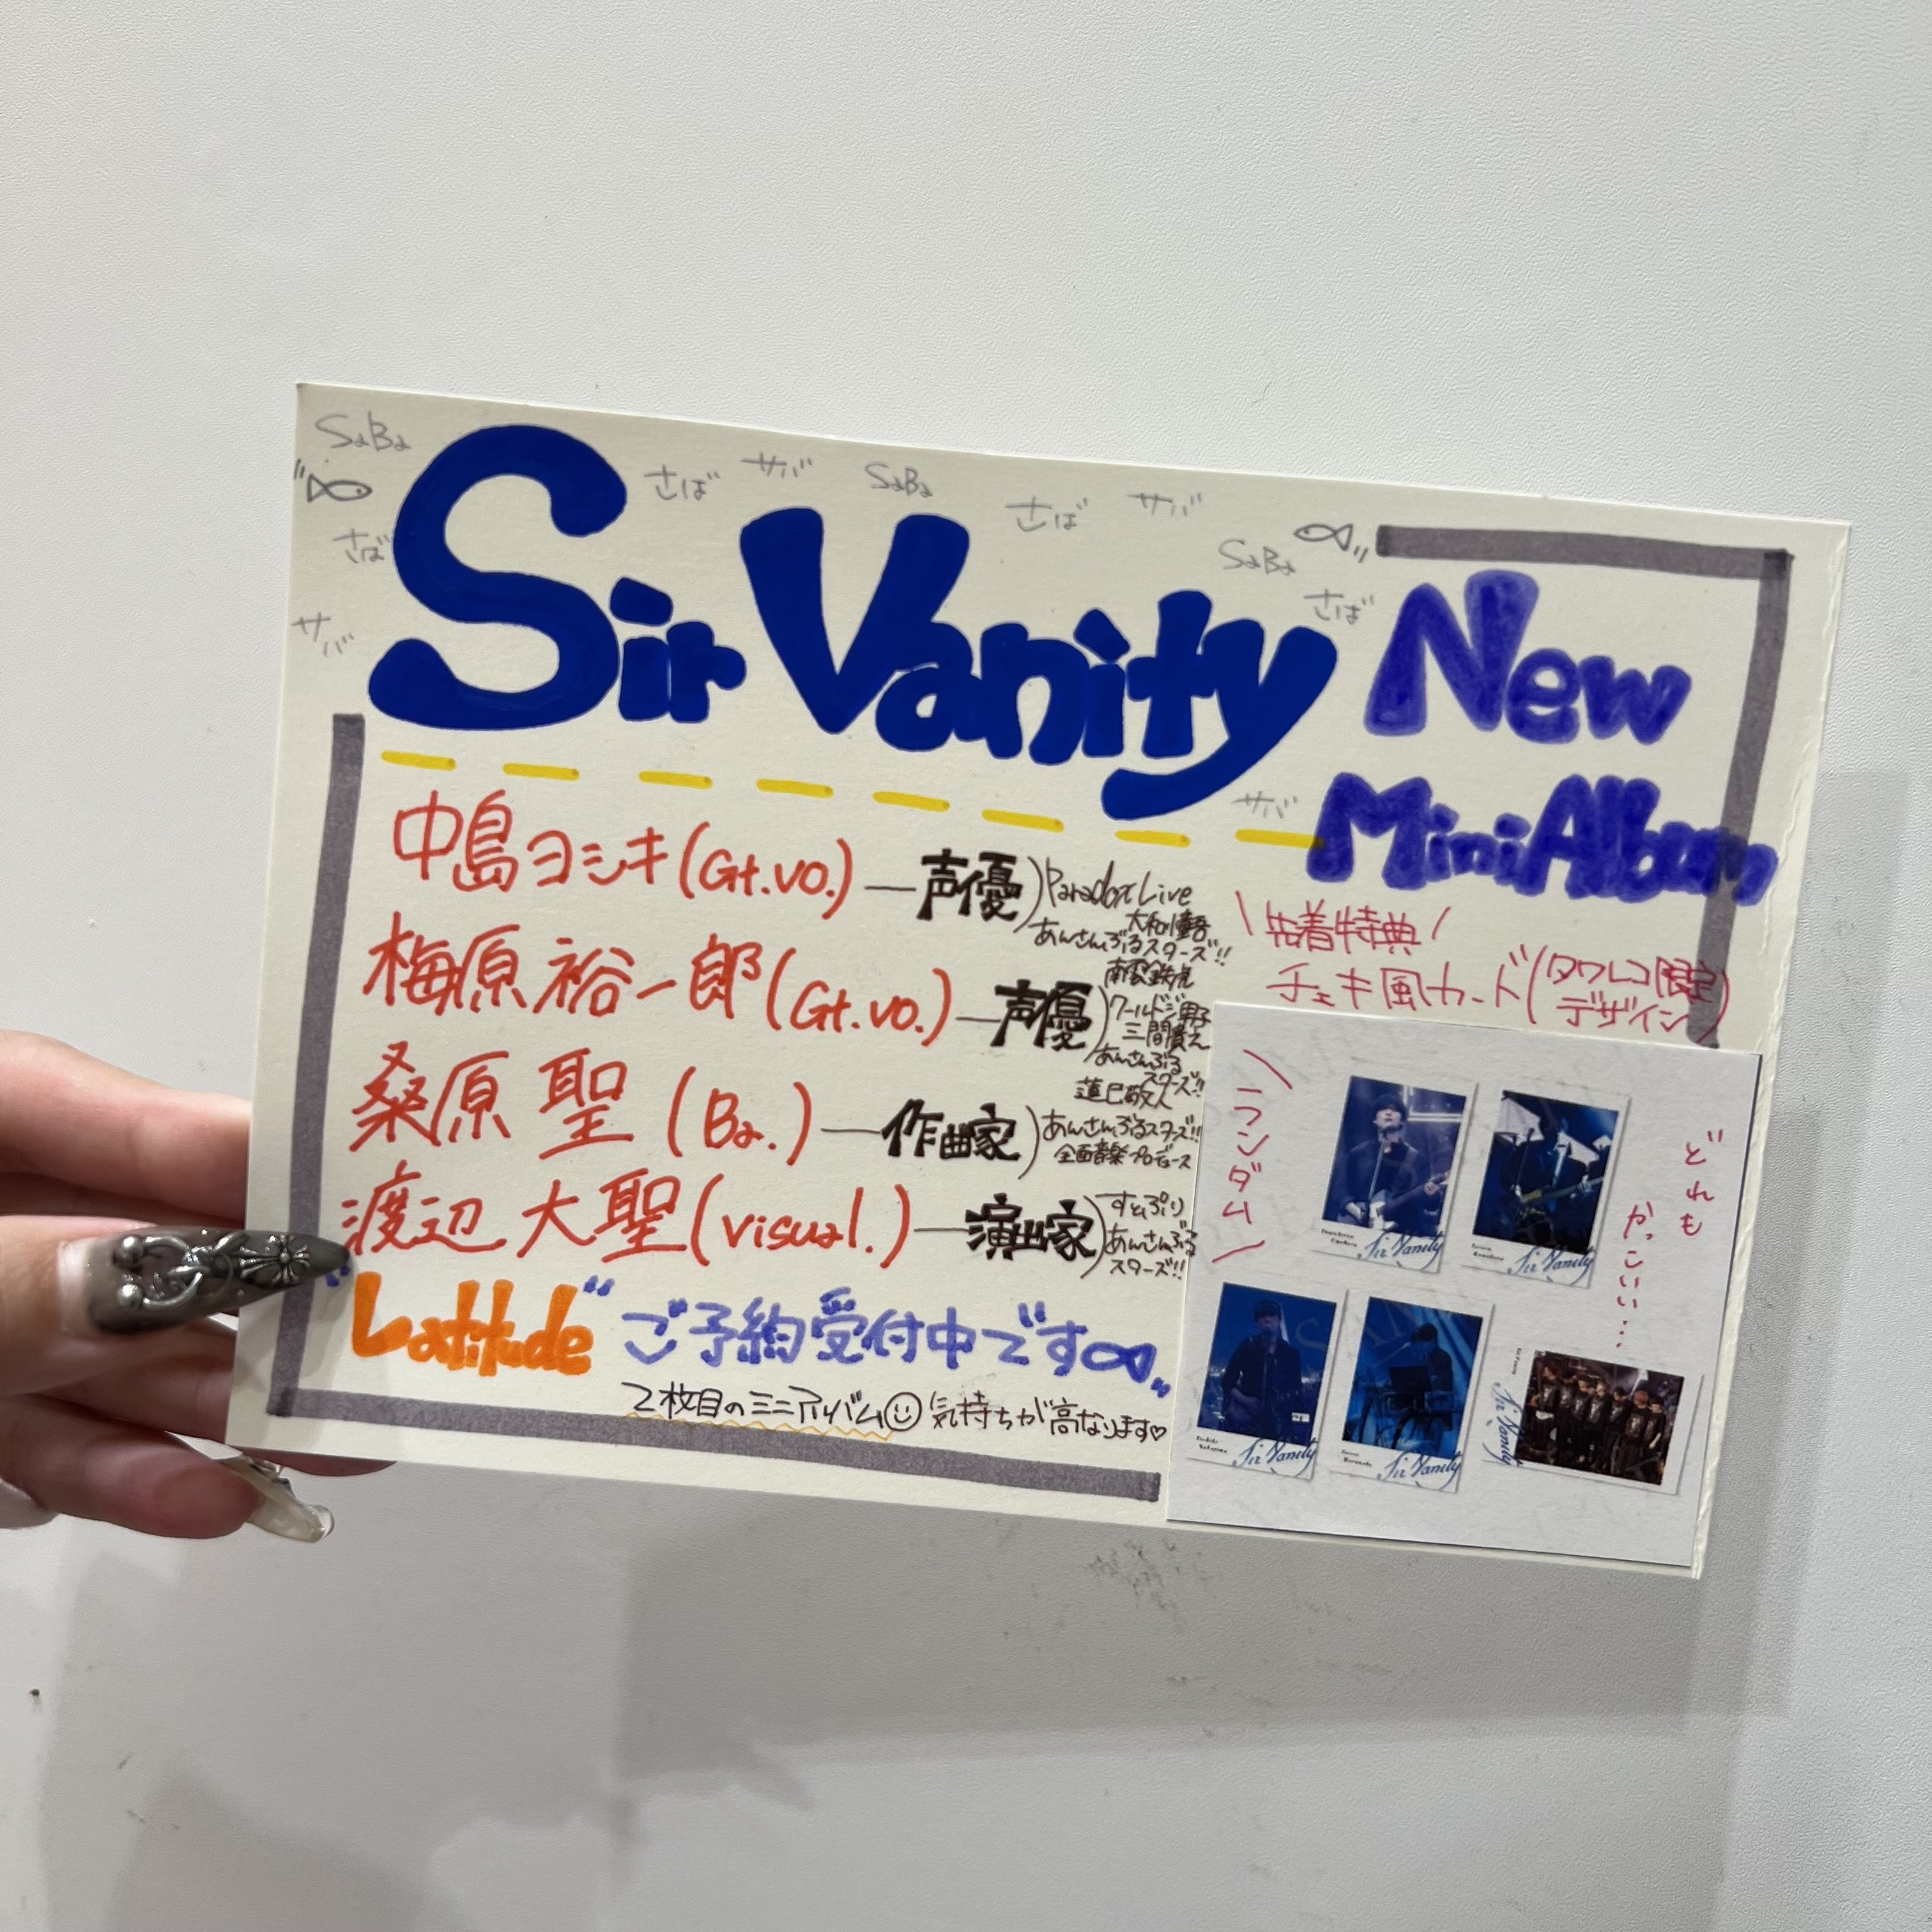 SaBa
さば
サバ
SaBa
さば
サバ
SaBa
さば
さば
サバ
サバ
Sir Vanity
New
Mini Album
中島ヨシキ(Gt.vo.)—声優)Paradox Live
大和憧吾
あんさんぶるスターズ!!
南雲鉄虎
梅原裕一郎(Gt.vo.)—声優)ワールドジ男子
三間貴之
あんさんぶる
スターズ!!
蓮巳敬人
桑原聖(Ba.)—作曲家)あんさんぶるスターズ!!
全面音楽プロデュース
渡辺大聖(visual.)—演出家)すとぷり
あんさんぶる
スターズ!!
"Latitude"ご予約受付中です
2枚目のミニアルバム☺気持ちが高なります♡
\先着特典/
チェキ風カード(タワレコ限定デザイン)
\ランダム/
どれも
かっこいい…
Sir Vanity
Sir Vanity
Sir Vanity
Sir Vanity
Sir Vanity